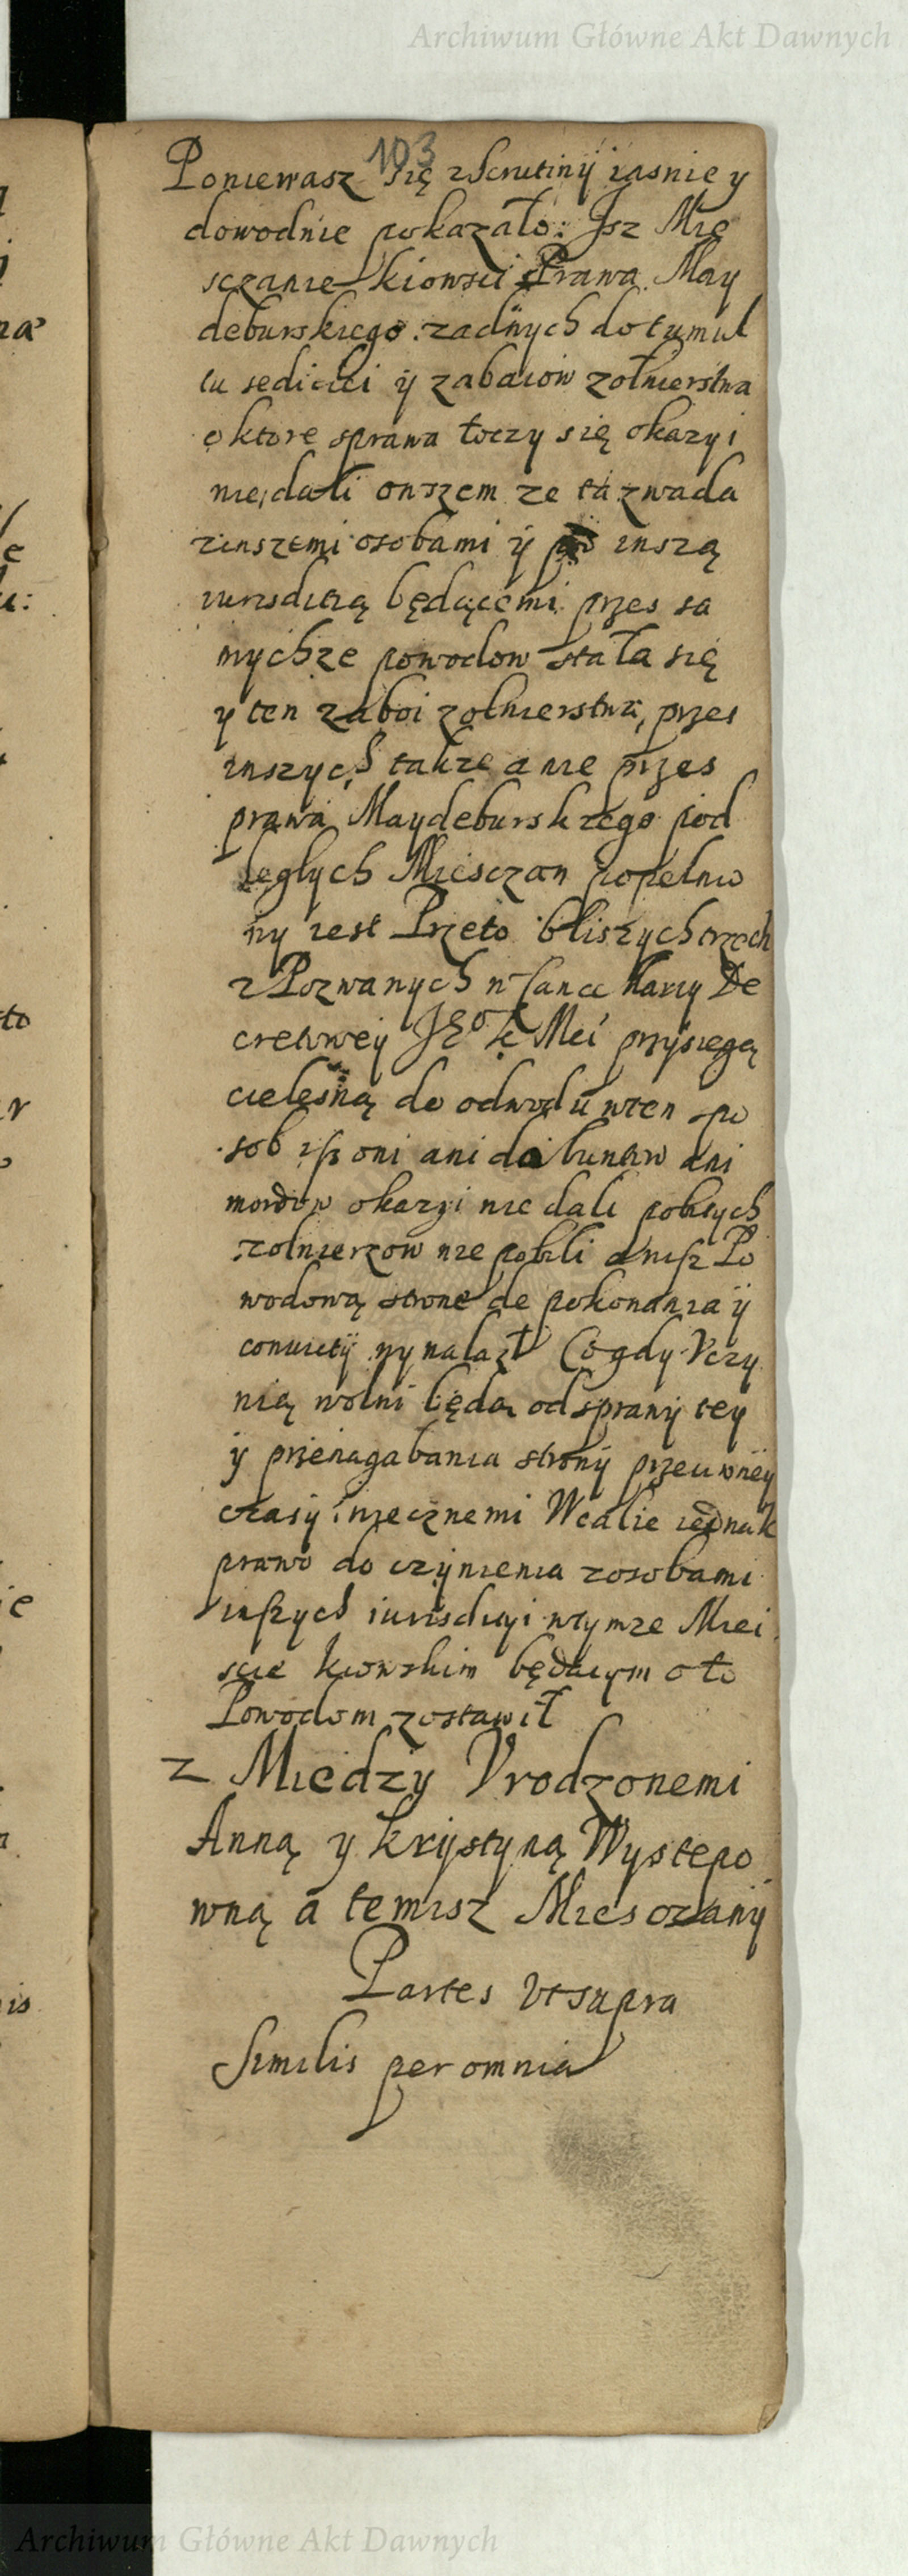 Archiwum Główne Akt Dawnych
103
Poniewasz się z Scrutiny iasnie y
dowodnie pokazało: Isz Mie
sczanie kiowsci Prawa May
deburskiego zadnych do tumul
tu sediciei ÿ zabaiow zołnierstwa
o ktore sprawa toczy się okazyi
nie dali owszem ze ta zwada
z inszemi osobami ÿ pod inszą
iurisdicią będącemi przes sa
mychze powodow stała się
y ten zaboi zołnierstwa, przes
inszych takze a nie przes
prawa Maydeburskiego pod
ległych Miesczan popełnio
ny iest Przeto bliszych trzech
z Pozwanych
cretowey Je° K Mci przysięgą
cielesną do odwodu w ten spo
sob isz oni ani do buntow ani
mordow okazyi nie dali pobitych
zolnierzow nie pobili anisz Po
wodową strone do pokonania ÿ
convictÿ wynalazł Co gdy Vczy
nią wolni będą od sprawy tey
ÿ przenagabania strony przeciwnÿ
czasy wiecznemi Wcalie iednak
prawo do czÿnienia z osobami
inszych iurisdicyi w tymze Miei
scie kiowskim będącym o to
Powodom zostawił
z Miedzy Vrodzonemi
Anną y krÿstyną Wystepo
wną a temisz Miesczany
Partes Vt supra
Similis per omnia
Archiwum Główne Akt Dawnych